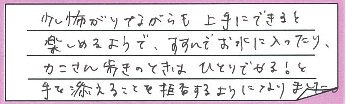 少し怖がりでながらも上手にできると
楽しめるようで、すすんでお水に入ったり、
カニさん歩きのときはひとりでやる!と
手を添えることを拒否するようになりました。